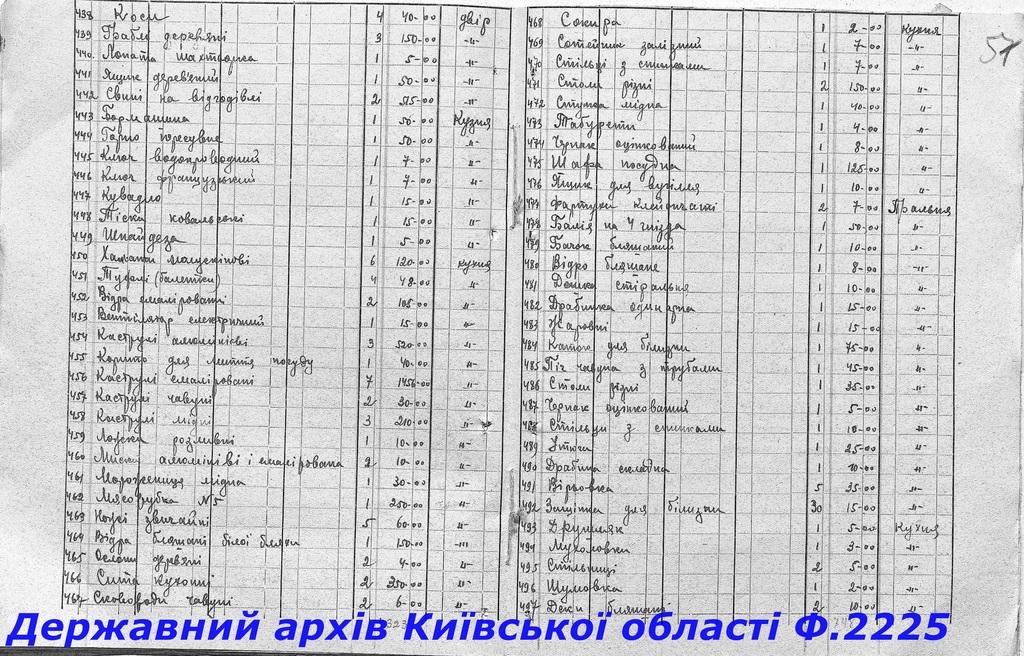 438 Коси 4 40-00 двір
439 Граблі деревяні 3 150-00 -"-
440 Лопата шахтарка 1 5-00 -"-
441 Ящик дерев'яний 1 50-00 -"-
442 Свині на відгодівлі 2 515-00 -"-
443 Бормашина 1 50-00 Кузня
444 Горно пересувне 1 50-00 -"-
445 Ключ водопроводний 1 7-00 -"-
446 Ключ французський 1 7-00 -"-
447 Кувадло 1 15-00 -"-
448 Тіски ковальські 1 15-00 -"-
449 1 5-00 -"-
450 Халати 6 120-00 кухня
451 Туфлі (балетки) 4 48-00 "
452 Відра емаліровані 2 108-00 "
453 Вентілятор електричний 1 15-00 "
454 Каструлі алюмінієві 3 520-00 "
455 Корито для миття посуду 1 40-00 "
456 Каструлі емаліровані 7 1456-00 "
457 Каструлі чавуні 2 30-00 "
458 Каструлі мідні 3 210-00 "
459 Ложки розливні 1 10-00 "
460 Миски алюмінієві і емалірована 2 10-00 "
461 Мороженниця мідна 1 30-00 "
462 Мясорубка №5 1 250-00 "
463 Ножі звичайні 5 60-00 "
464 Відра бляшані білої бляхи 1 150-00 -"-
465 Ослони дерев'яні 2 4-00 "
466 Сита кухонні 2 350-00 "
467 Сковороди чавуні 2 6-00 -"-
468 Сокира 1 2-00 Кухня
469 Сотейник залізний 1 7-00 -"-
470 Стільці з спинками 1 7-00 "
471 Столи різні 2 150-00 "
472 Ступка мідна 1 40-00 "
473 Табурети 1 4-00 "
474 Черпак оцинкований 1 8-00 "
475 Шафа посудна 1 125-00 "
476 Ящик для вугілля 1 10-00 "
477 Фартухи клейончаті 2 7-00 Пральня
478 Балія на 4 гнізда 1 50-00 "
479 Бачок бляшаний 1 10-00 "
480 Відро бляшане 1 8-00 -"-
481 Дошка стіральна 1 10-00 "
482 Драбинка одинарна 1 15-00 "
483 Жаровні 1 15-00 "
484 Каток для білизни 1 75-00 "
485 Піч чавуна з трубами 1 45-00 "
486 Столи різні 1 35-00 "
487 Черпак оцинкований 1 5-00 "
488 Стільці з спинками 1 10-00 "
489 Утюги 1 25-00 "
490 Драбина складна 1 10-00 "
491 Вірьовка 5 35-00 "
492 Защіпка для білизни 30 15-00 "
493 Друшляк 1 5-00 Кухня
494 Мухоловки 1 3-00 -"-
495 Стільниці 2 5-00 "
496 Шумовка 1 2-00 "
497 Деки бляшані 2 10-00 "
51
Державний архів Київської області Ф.2225